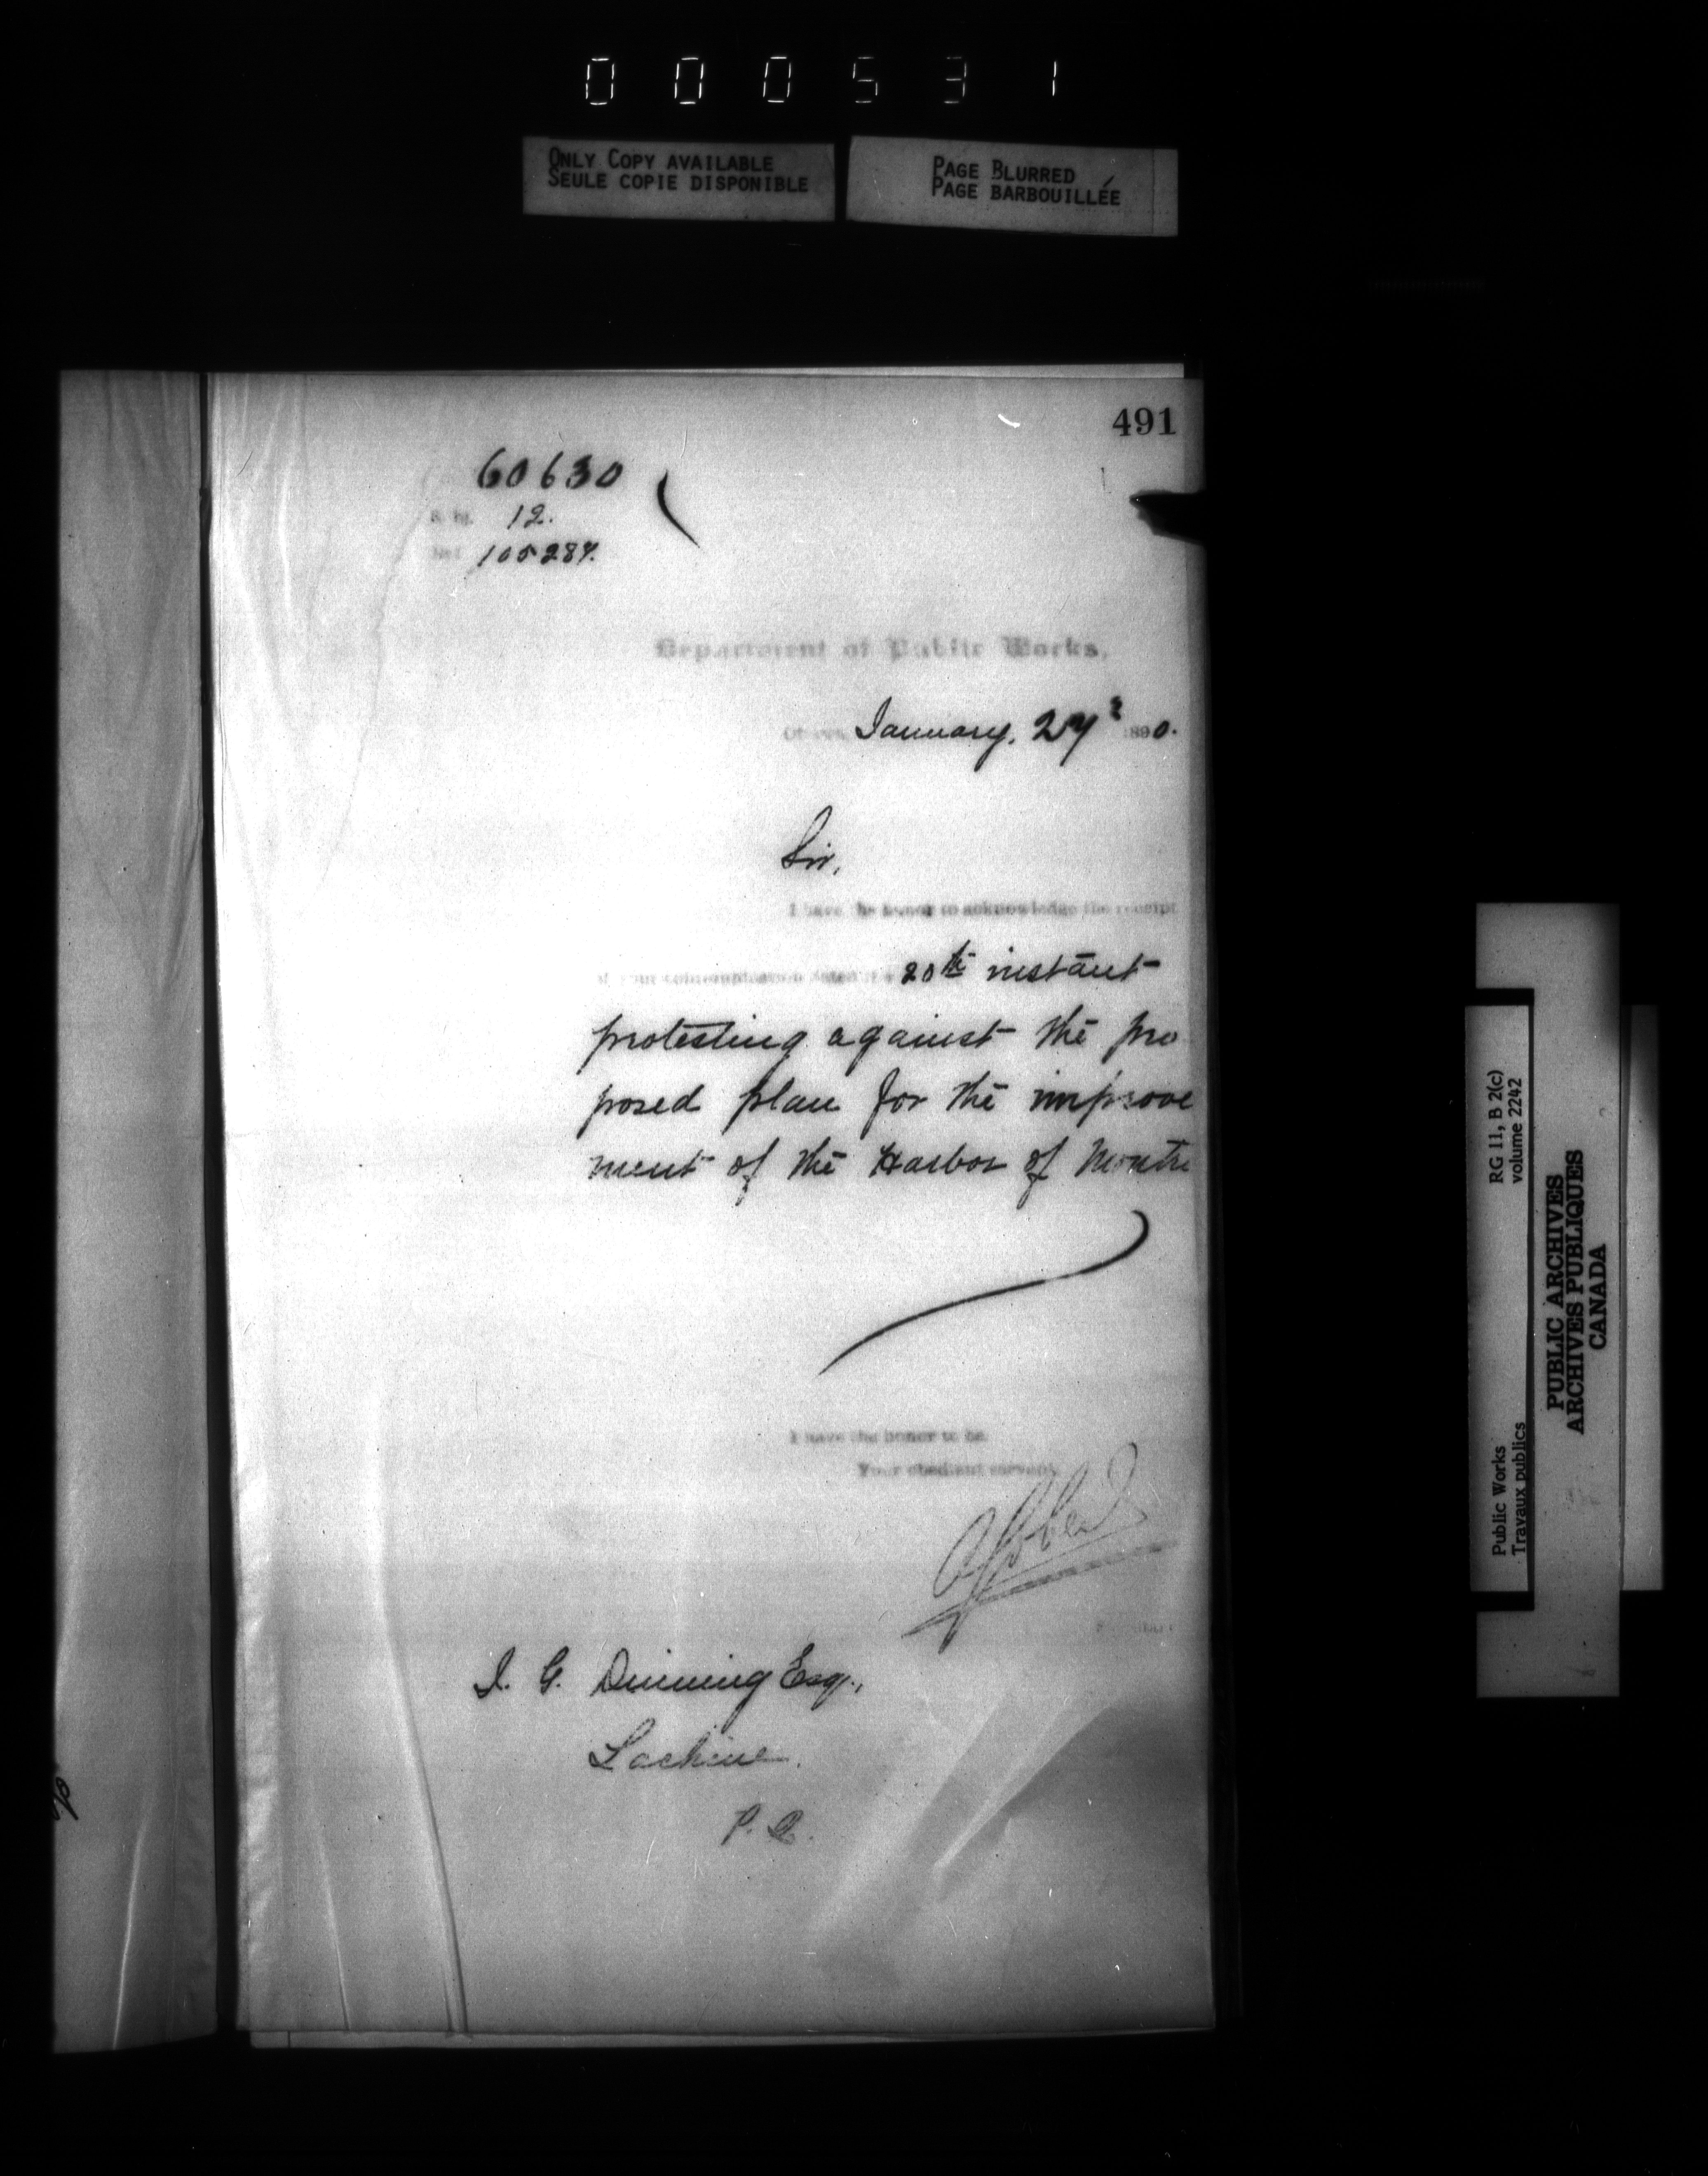 000531
ONLY COPY AVAILABLE
SEULE COPIE DISPONIBLE
PAGE BLURRED
PAGE BARBOUILLÉE
491
60630
12.
Department of Public Works,
January, 27 1890.
Sir,
I have the honor to acknowledge the receipt
of your communication dated the 20th instant
protesting against the pro
posed plan for the improve
ment of the Harbor of Montre
I have the honor to be
Your obedient servant,
I. G. Dinning Esq.,
Lachine.
P. Q.
Public Works
Travaux publics
RG 11, B 2(c)
volume 2242
PUBLIC ARCHIVES
ARCHIVES PUBLIQUES
CANADA